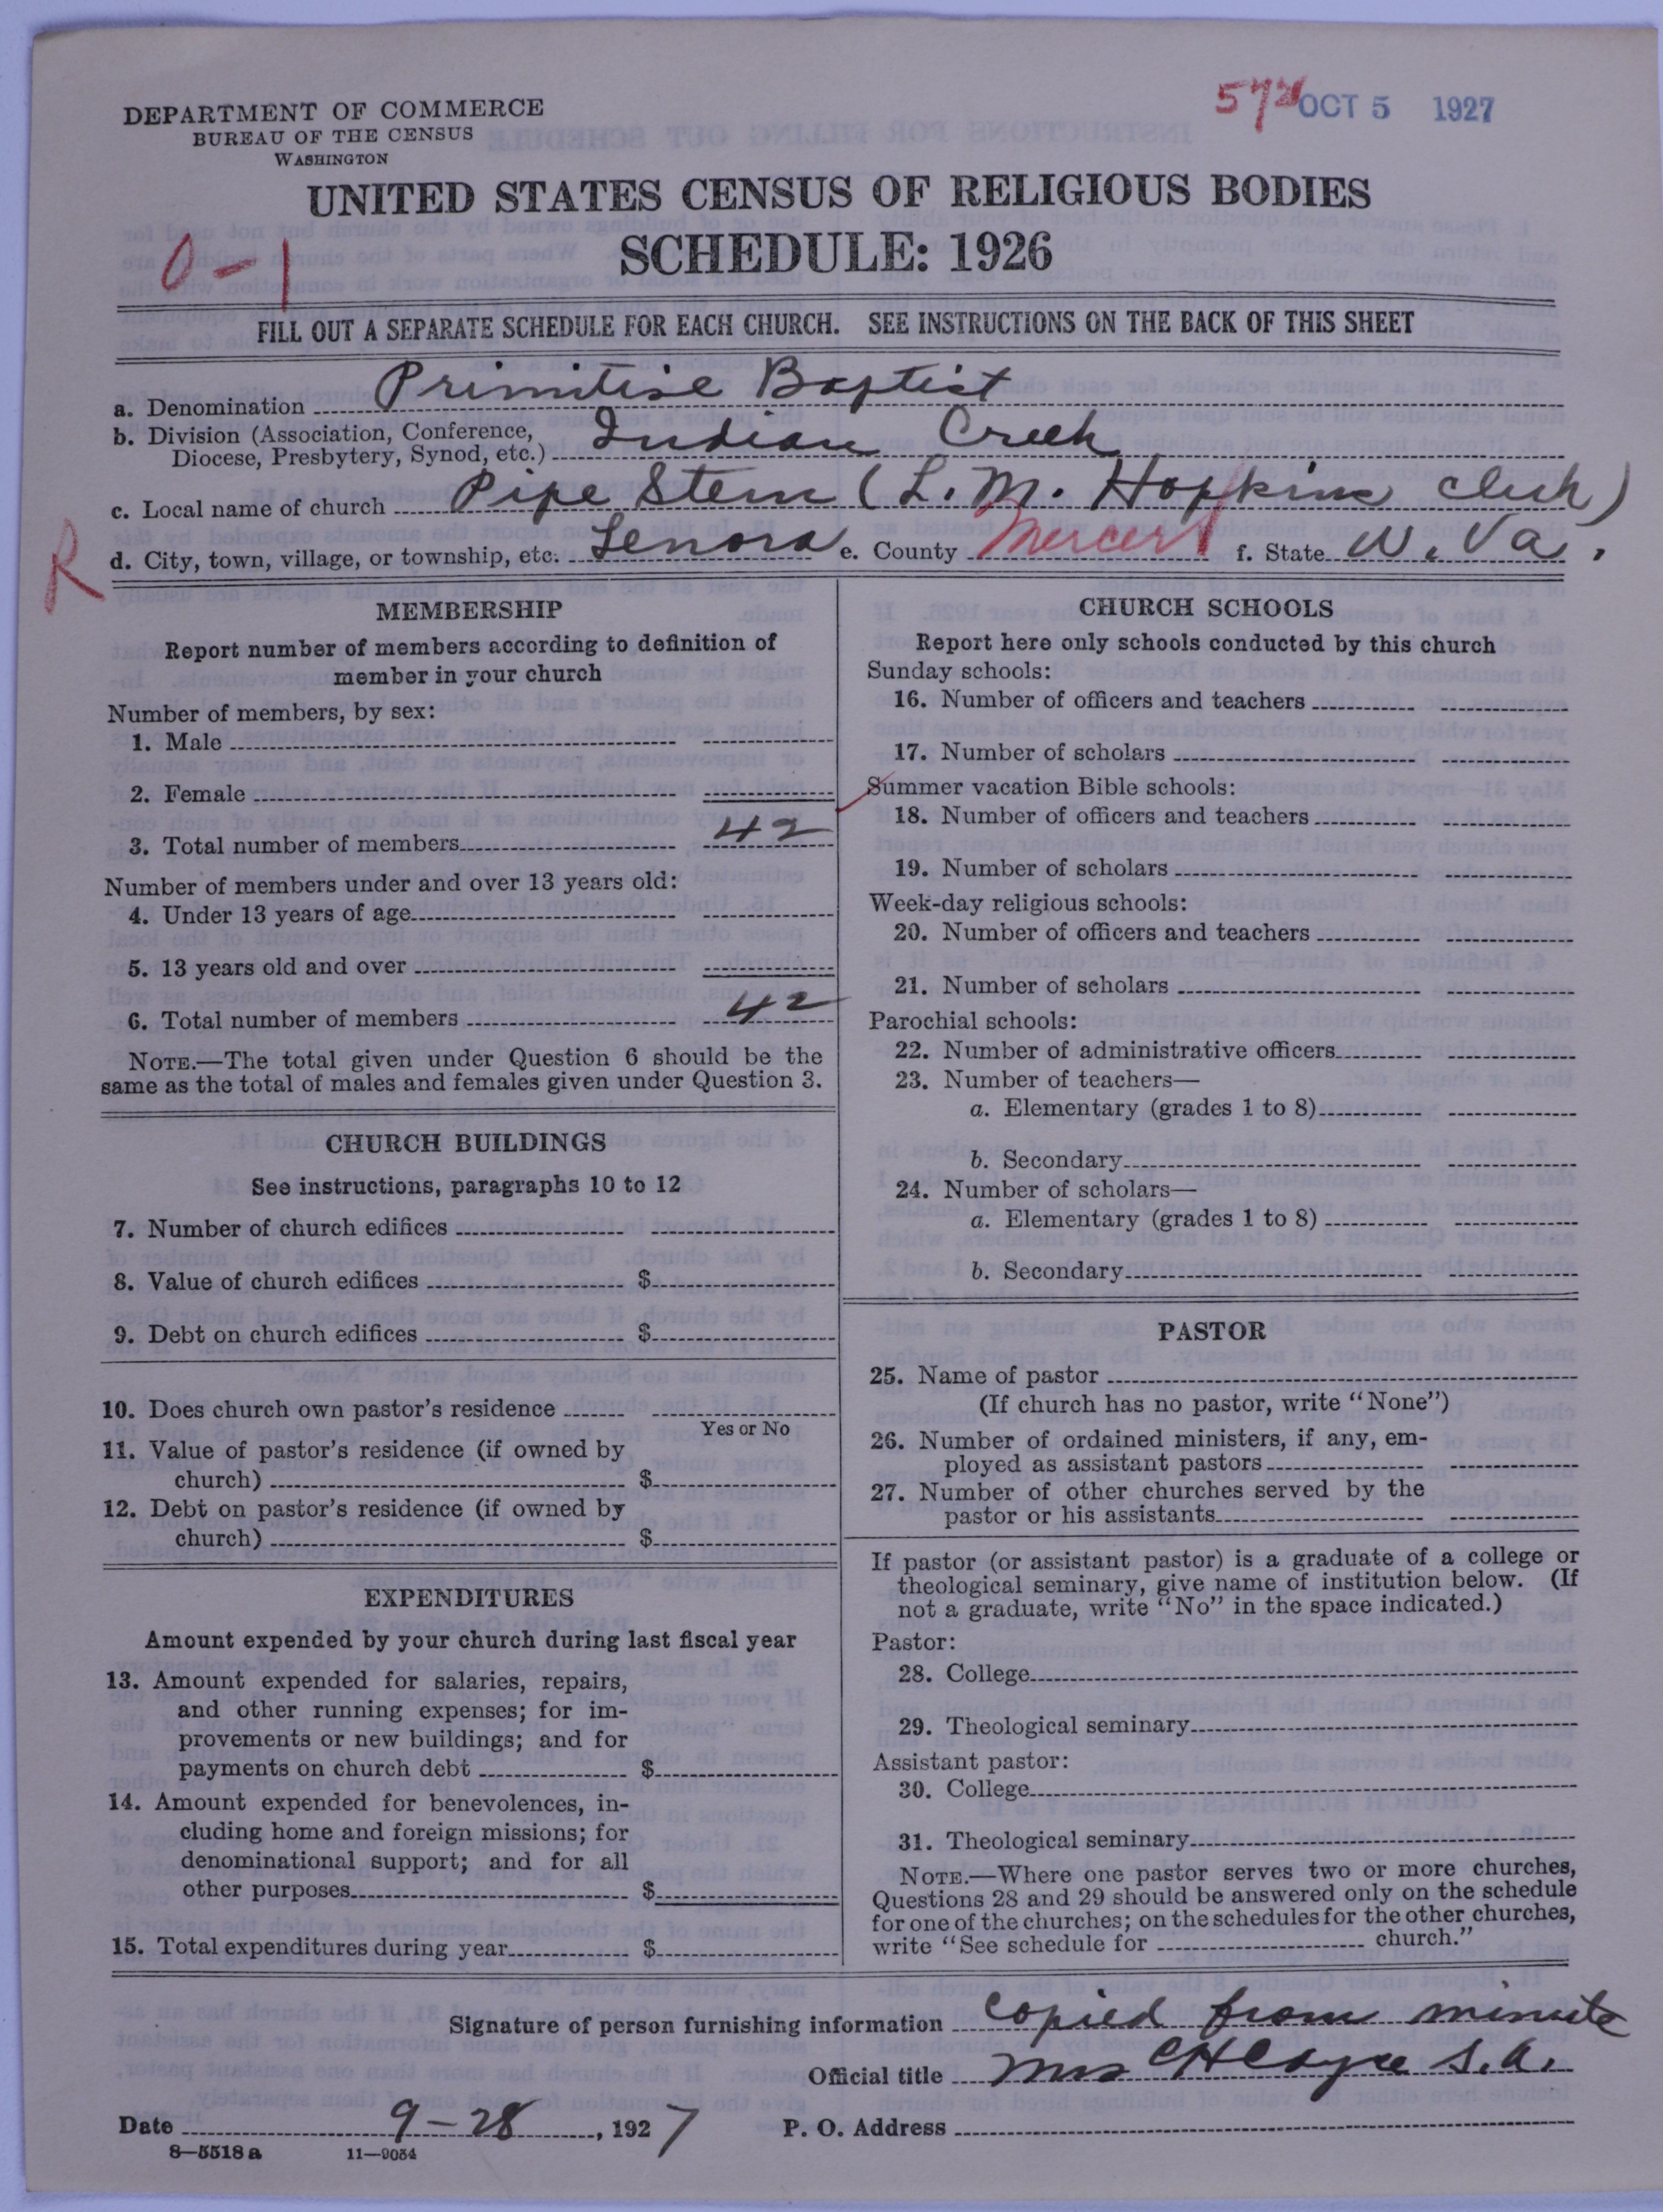 572 OCT 5 1927
DEPARTMENT OF COMMERCE
BUREAU OF THE CENSUS
WASHINGTON
UNITED STATES CENSUS OF RELIGIOUS BODIES
SCHEDULE: 1926
0-1
FILL OUT A SEPARATE SCHEDULE FOR EACH CHURCH. SEE INSTRUCTIONS ON THE BACK OF THIS SHEET
a. Denomination Primitive Baptist
b. Division (Association, Conference, Diocese, Presbytery, Synod, etc.) Indian Creek
c. Local name of church Pipe Stem (L. M. Hopkins clerk)
R
d. City, town, village, or township, etc. Lenora e. County Mercer f. State W. Va.
MEMBERSHIP
Report number of members according to definition of
member in your church
Number of members, by sex:
1. Male
2. Female
3. Total number of members 42
Number of members under and over 13 years old:
4. Under 13 years of age
5. 13 years old and over
6. Total number of members 42
NOTE.—The total given under Question 6 should be the
same as the total of males and females given under Question 3.
CHURCH BUILDINGS
See instructions, paragraphs 10 to 12
7. Number of church edifices
8. Value of church edifices $
9. Debt on church edifices $
10. Does church own pastor's residence
Yes or No
11. Value of pastor's residence (if owned by
church) $
12. Debt on pastor's residence (if owned by
church) $
EXPENDITURES
Amount expended by your church during last fiscal year
13. Amount expended for salaries, repairs,
and other running expenses; for im-
provements or new buildings; and for
payments on church debt $
14. Amount expended for benevolences, in-
cluding home and foreign missions; for
denominational support; and for all
other purposes $
15. Total expenditures during year $
CHURCH SCHOOLS
Report here only schools conducted by this church
Sunday schools:
16. Number of officers and teachers
17. Number of scholars
Summer vacation Bible schools:
18. Number of officers and teachers
19. Number of scholars
Week-day religious schools:
20. Number of officers and teachers
21. Number of scholars
Parochial schools:
22. Number of administrative officers
23. Number of teachers—
a. Elementary (grades 1 to 8)
b. Secondary
24. Number of scholars—
a. Elementary (grades 1 to 8)
b. Secondary
PASTOR
25. Name of pastor
(If church has no pastor, write "None")
26. Number of ordained ministers, if any, em-
ployed as assistant pastors
27. Number of other churches served by the
pastor or his assistants
If pastor (or assistant pastor) is a graduate of a college or
theological seminary, give name of institution below. (If
not a graduate, write "No" in the space indicated.)
Pastor:
28. College
29. Theological seminary
Assistant pastor:
30. College
31. Theological seminary
NOTE.—Where one pastor serves two or more churches,
Questions 28 and 29 should be answered only on the schedule
for one of the churches; on the schedules for the other churches,
write "See schedule for church."
Signature of person furnishing information copied from minute
Official title Mrs C H Cayce S.A.
Date 9-28, 1927 P. O. Address
8—5518a 11—9054